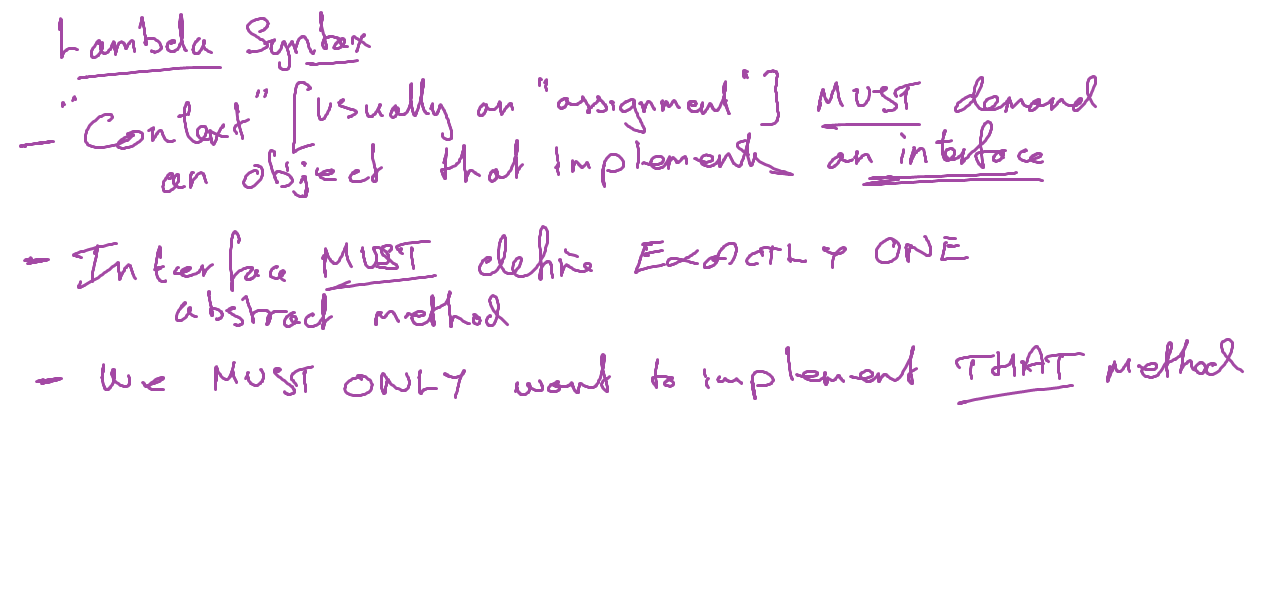 Lambda Syntax
- "Context" [usually an "assignment"] MUST demand
an object that implements an interface
- Interface MUST define EXACTLY ONE
abstract method
- We MUST ONLY want to implement THAT method